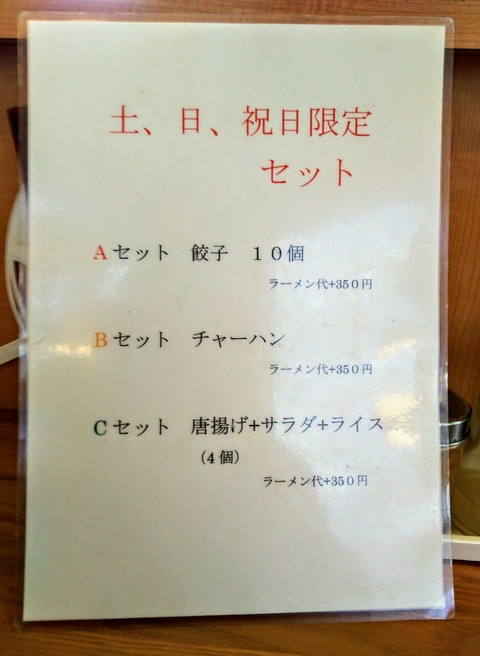 土、日、祝日限定
セット
Aセット　餃子　１０個
ラーメン代+350円
Bセット　チャーハン
ラーメン代+350円
Cセット　唐揚げ+サラダ+ライス
（4個）
ラーメン代+350円